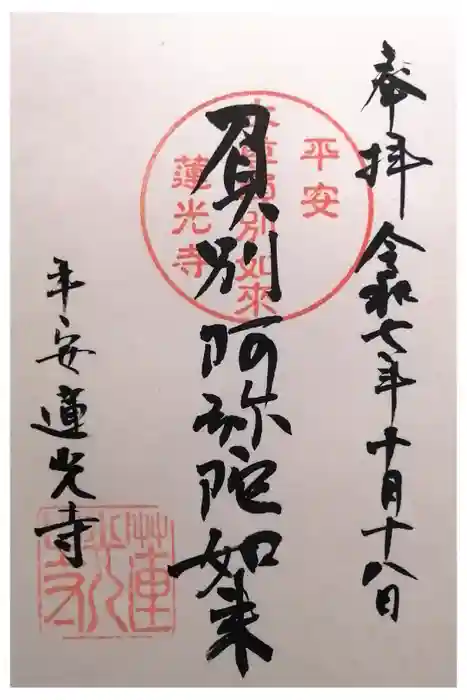 奉拝 令和七年十月十八日
負別阿弥陀如来
平安 蓮光寺
平安
負別如來
蓮光寺
蓮光寺